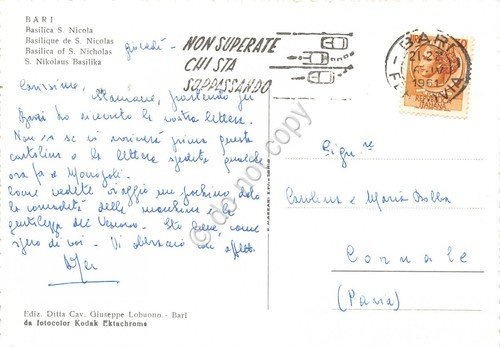 BARI
Basilica S. Nicola
Basilique de S. Nicolas
Basilica of S. Nicholas
S. Nikolaus Basilika
giovedì -
NON SUPERATE
CHI STA
SORPASSANDO
BARI
1961
Carissime,
Stamane, partendo per
Bari ho ricevuto la vostra lettera.
Non so se vi arriverà prima questa
cartolina o la lettera spedita qualche
ora fa a Monopoli.
Come vedete viaggio un pochino data
la comodità della macchina e la
gentilezza del
Sto bene, come
spero di voi. Vi abbraccio con affetto.
Sign.re
Carolina e Maria
Cornale
(Pavia)
Ediz. Ditta Cav. Giuseppe Lobuono - Bari
da fotocolor Kodak Ektachrome
do not copy